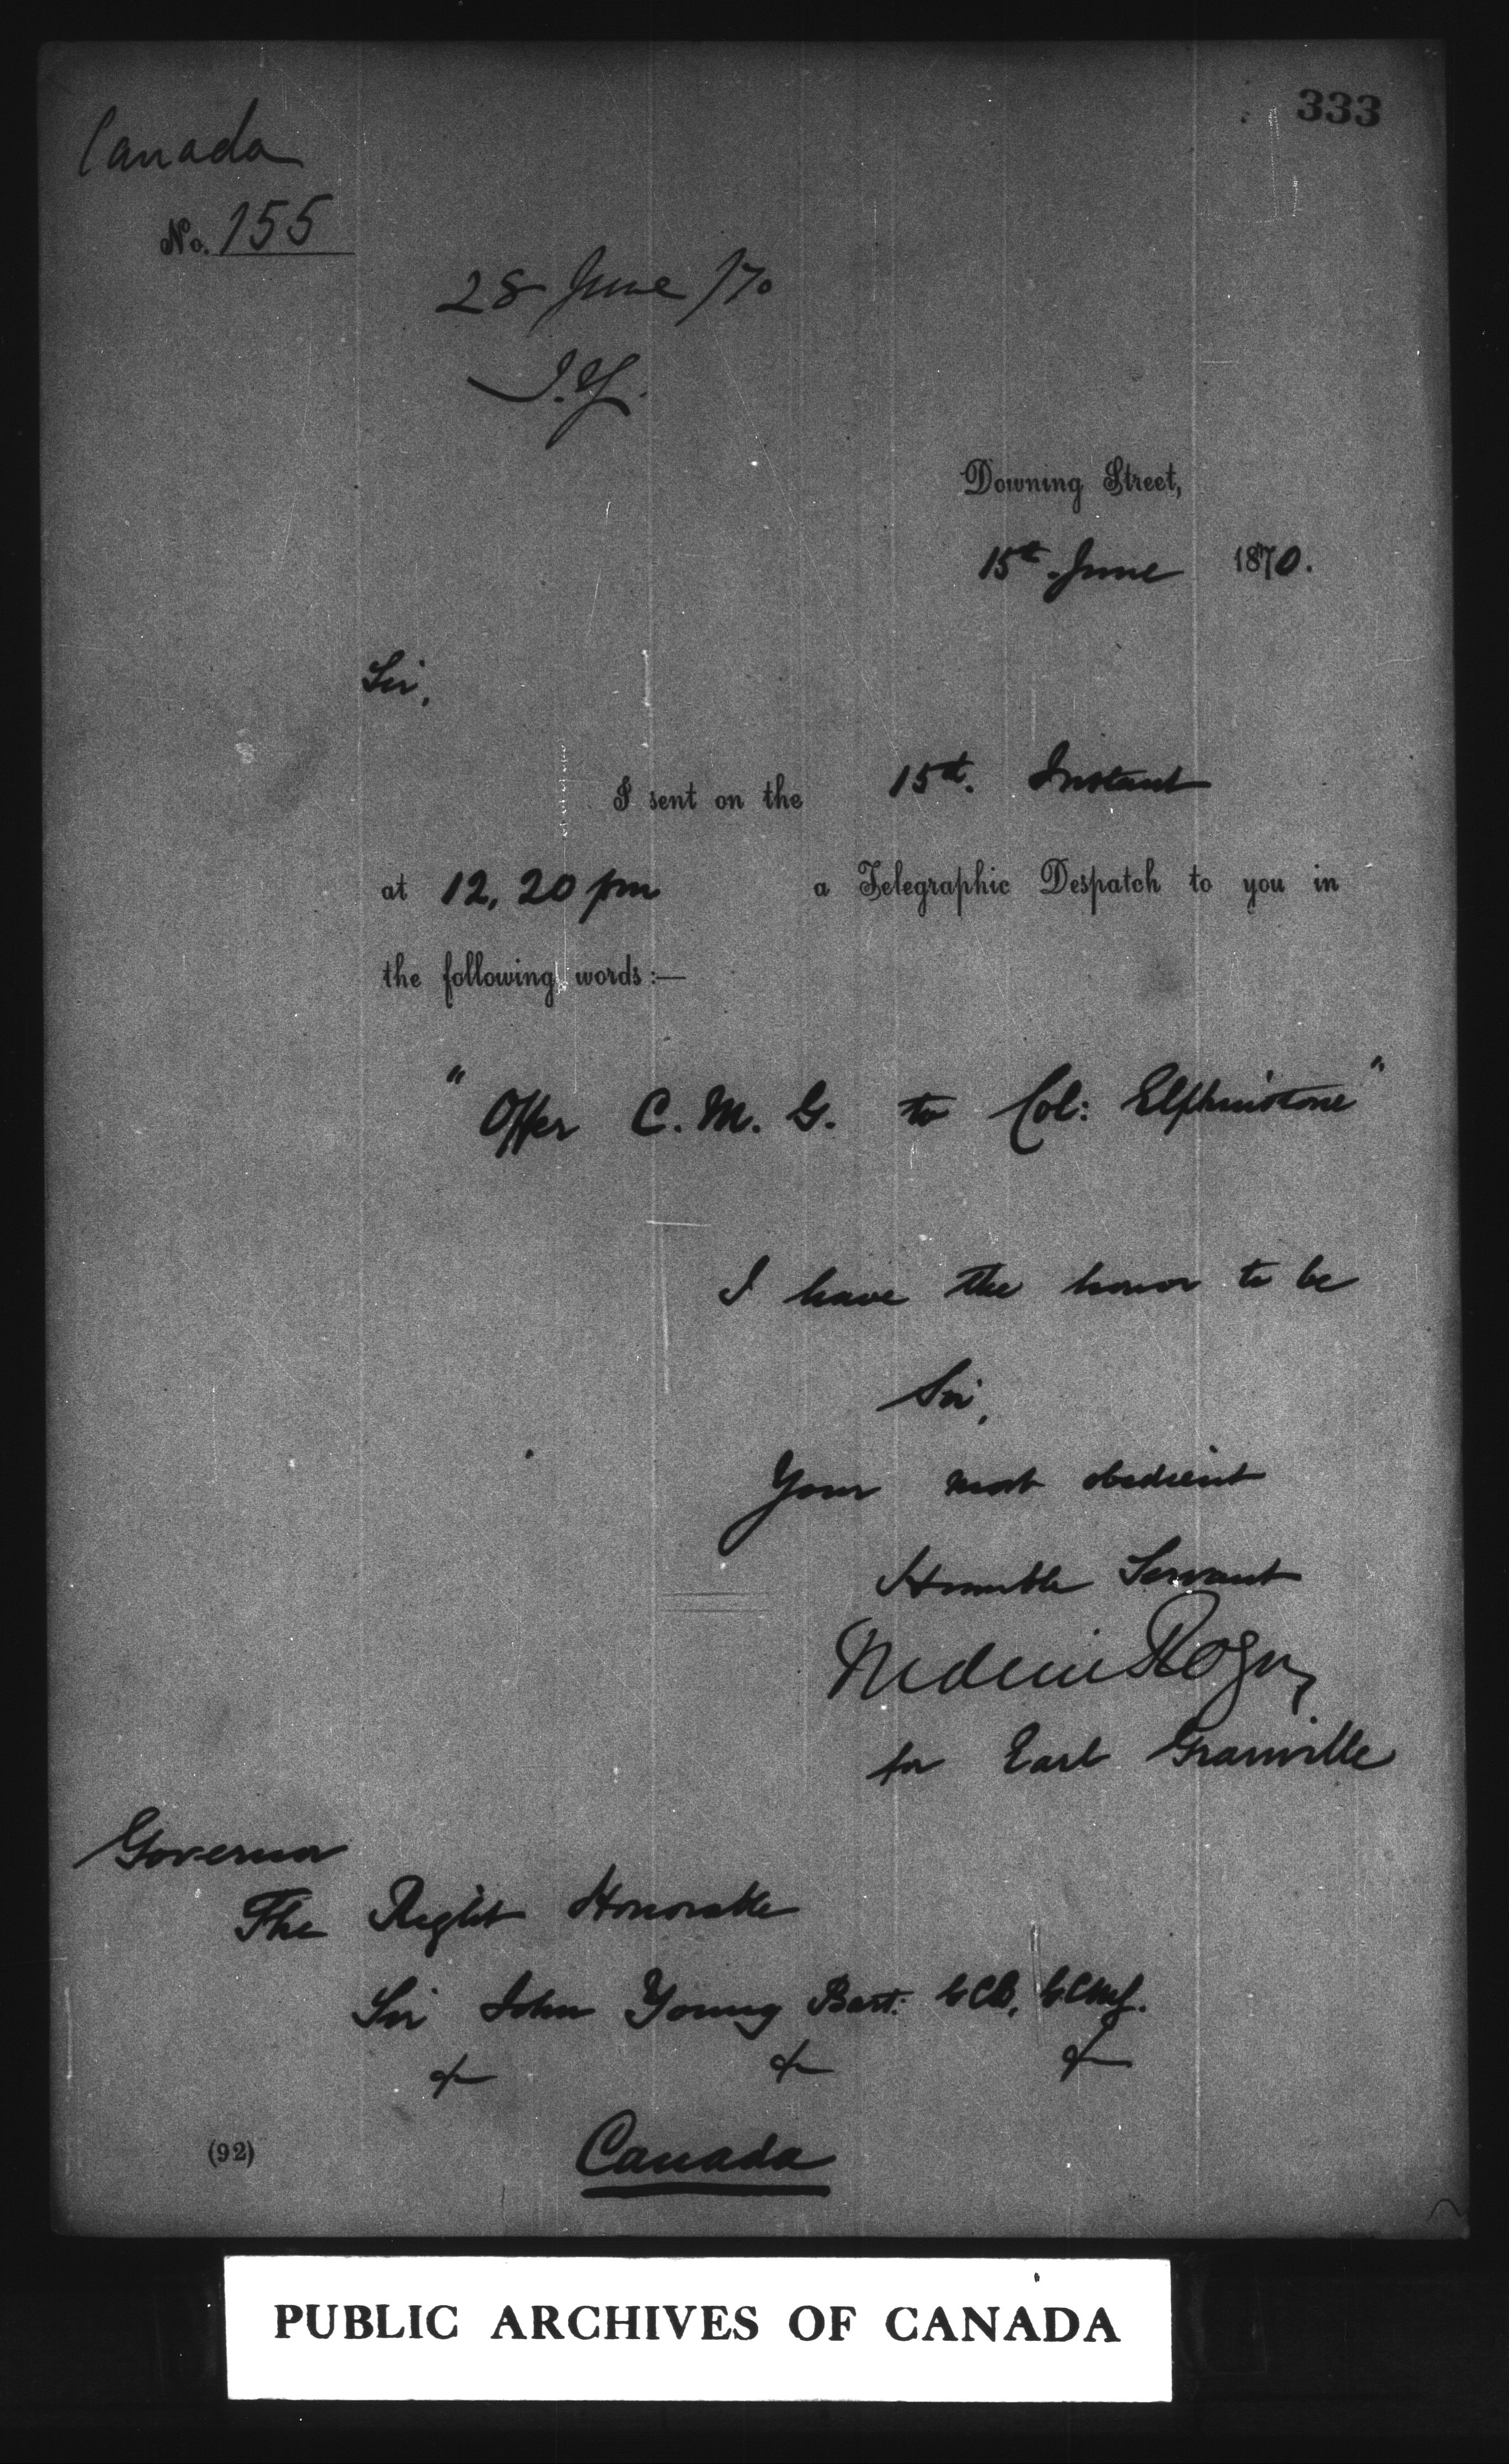 333
Canada
No. 155
28 June /70
J.Y.
Downing Street,
15th June 1870.
Sir,
I sent on the 15th. Instant
at 12,20 pm a Telegraphic Despatch to you in
the following words:—
"Offer C. M. G. to Col: Elphinstone"
I have the honor to be
Sir,
Your most obedient
Humble Servant
Frederic Rogers
for Earl Granville
Governor
The Right Honorable
Sir John Young Bart: GCB, GCMG.
& & &
Canada
(92)
PUBLIC ARCHIVES OF CANADA